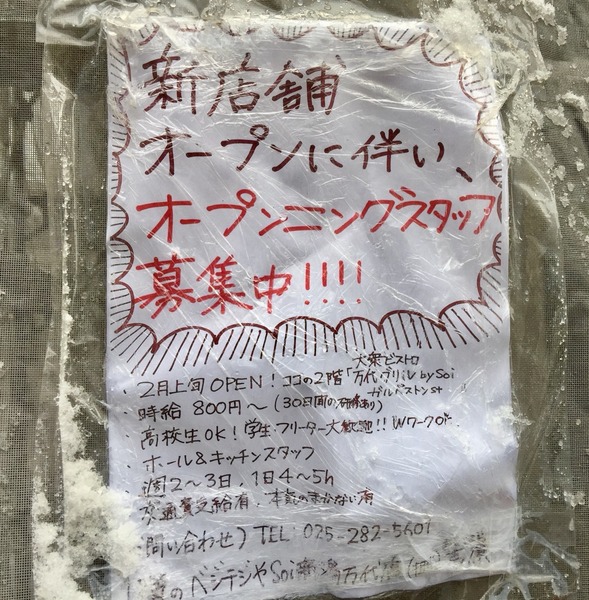 新店舗
オープンに伴い、
オープンニングスタッフ
募集中!!!!
大衆ビストロ
・2月上旬 OPEN! ココの2階「万代グリル by Soi
ガルベストン st
・時給 800円〜 (30日間の研修あり)
・高校生OK! 学生・フリーター大歓迎!! Wワーク OK.
・ホール&キッチンスタッフ
・週2〜3日, 1日4〜5h
交通費支給有. 本気のまかない有
問い合わせ) TEL 025-282-5601
のベジテジや Soi 万代